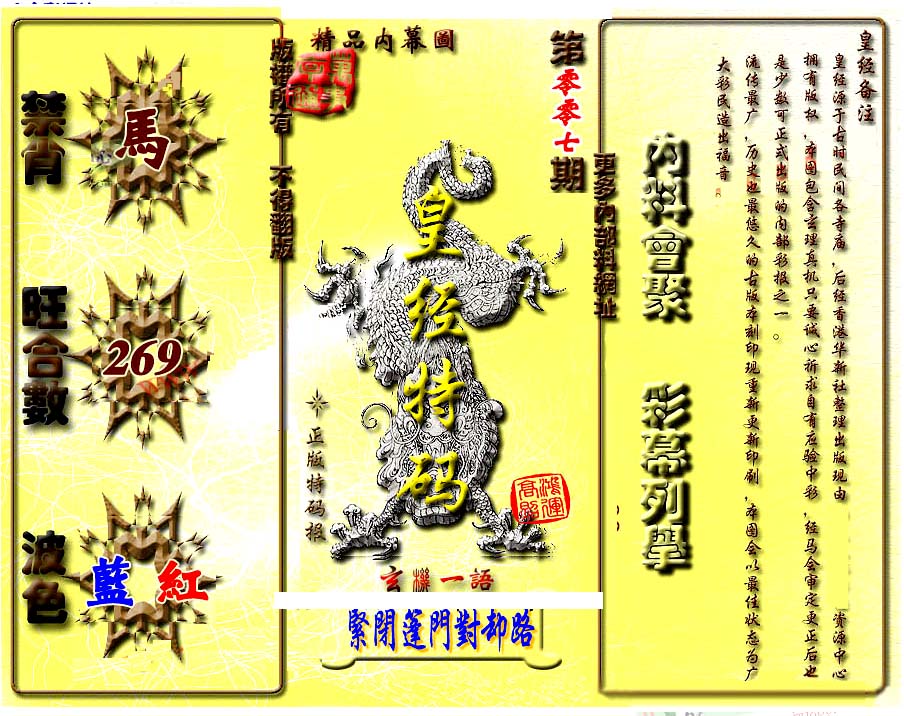 精品内幕圖
第零零七期
版權所有　不得翻版
更多內部料網址
禁肖
馬
旺合數
269
波色
藍 紅
皇经特码
正版特码报
鴻運
高照
玄機一語
緊閉篷門對却路
內料會聚　彩幕列舉
皇经备注
皇经源于古时民间各寺庙，后经香港华新社整理出版现由　　　资源中心
拥有版权，本图包含玄理真机只要诚心祈求自有应验中彩，经马会审定更正后也
是少数可正式出版的内部彩报之一。
流传最广，历史也最悠久的古版本刻印现重新更新印刷，本图会以最佳状态为广
大彩民造出福音